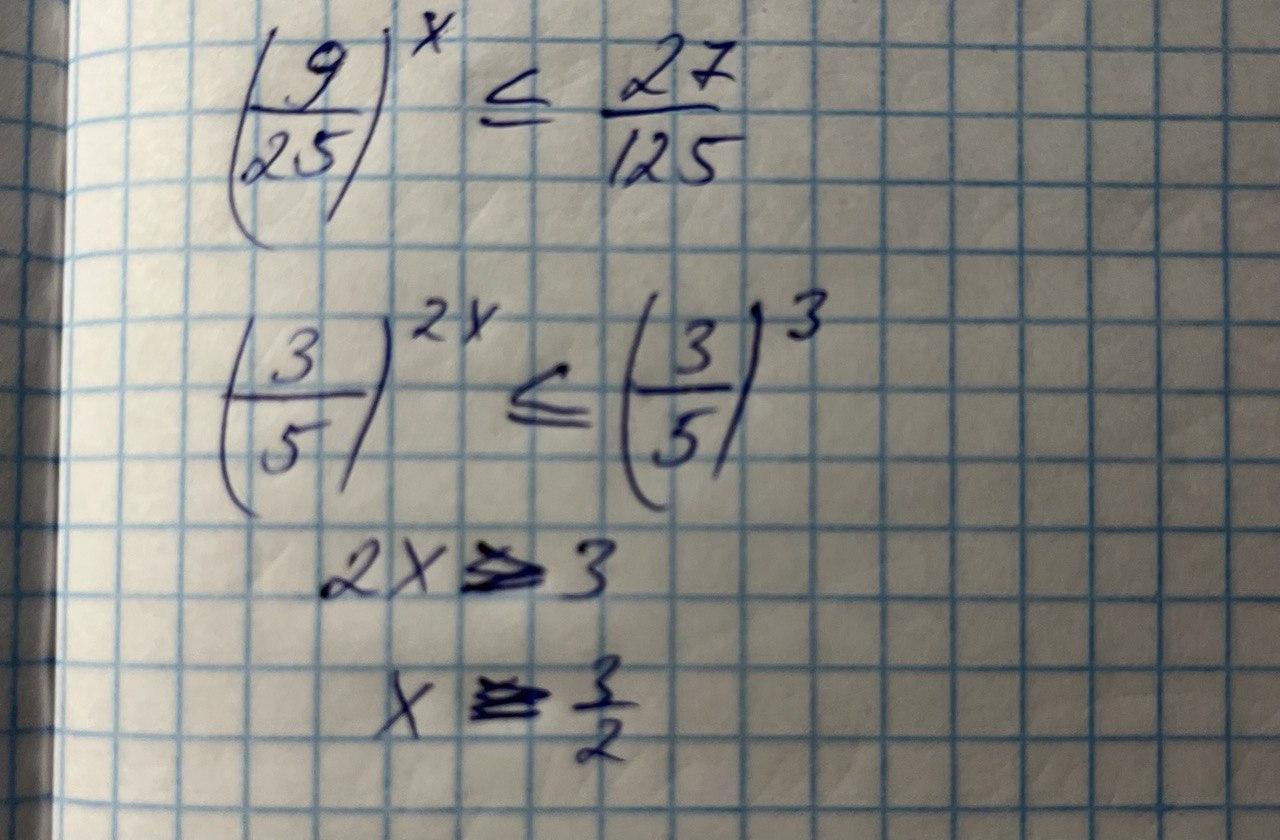 (9/25)^x ≤ 27/125
(3/5)^2x ≤ (3/5)^3
2x ≥ 3
x ≥ 3/2